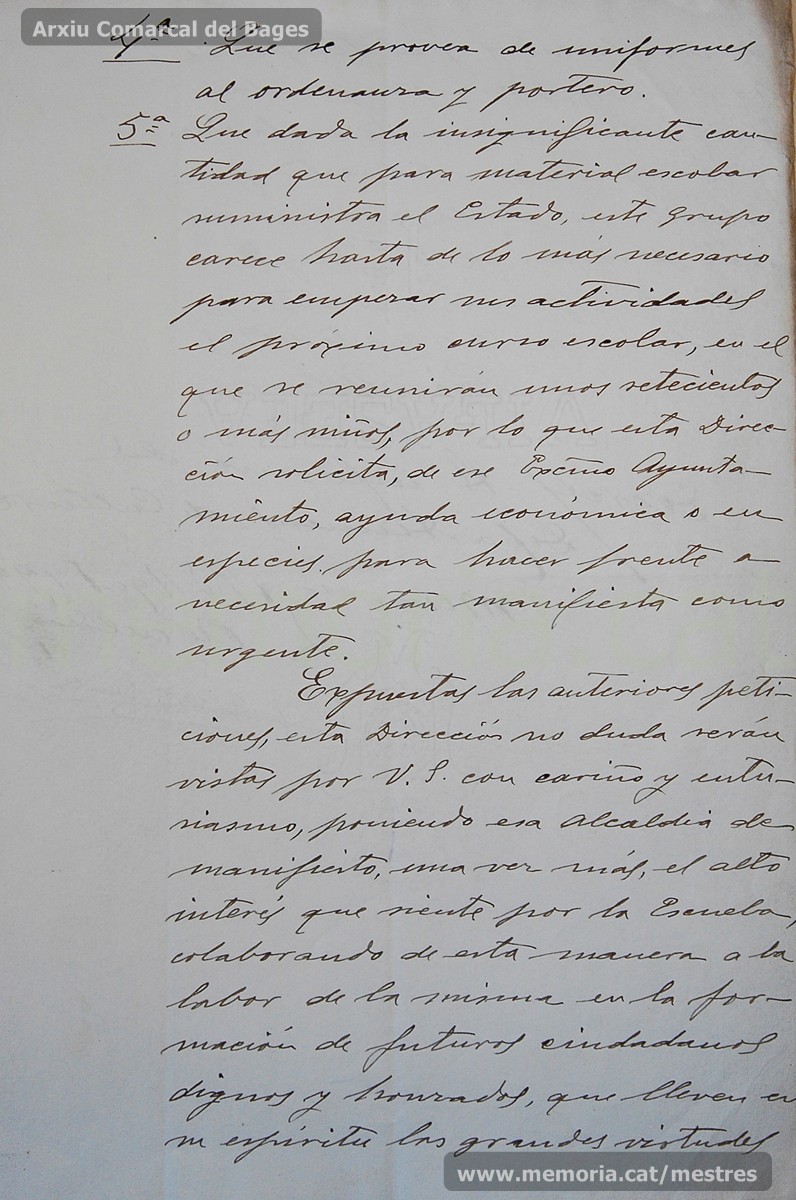 Arxiu Comarcal del Bages
4ª Que se provea de uniformes
al ordenanza y portero.
5ª Que dada la insignificante can-
tidad que para material escolar
suministra el Estado, este Grupo
carece hasta de lo más necesario
para empezar sus actividades
el próximo curso escolar, en el
que se reunirán unos setecientos
o más niños, por lo que esta Direc-
ción solicita, de ese Excmo Ayunta-
miento, ayuda económica o en
especies, para hacer frente a
necesidad tan manifiesta como
urgente.
Expuestas las anteriores peti-
ciones, esta Dirección no duda serán
vistas por V. S. con cariño y entu-
siasmo, poniendo esa Alcaldia de
manifiesto, una vez más, el alto
interés que siente por la Escuela,
colaborando de esta manera a la
labor de la misma en la for-
mación de futuros ciudadanos
dignos y honrados, que lleven en
su espíritu las grandes virtudes
www.memoria.cat/mestres